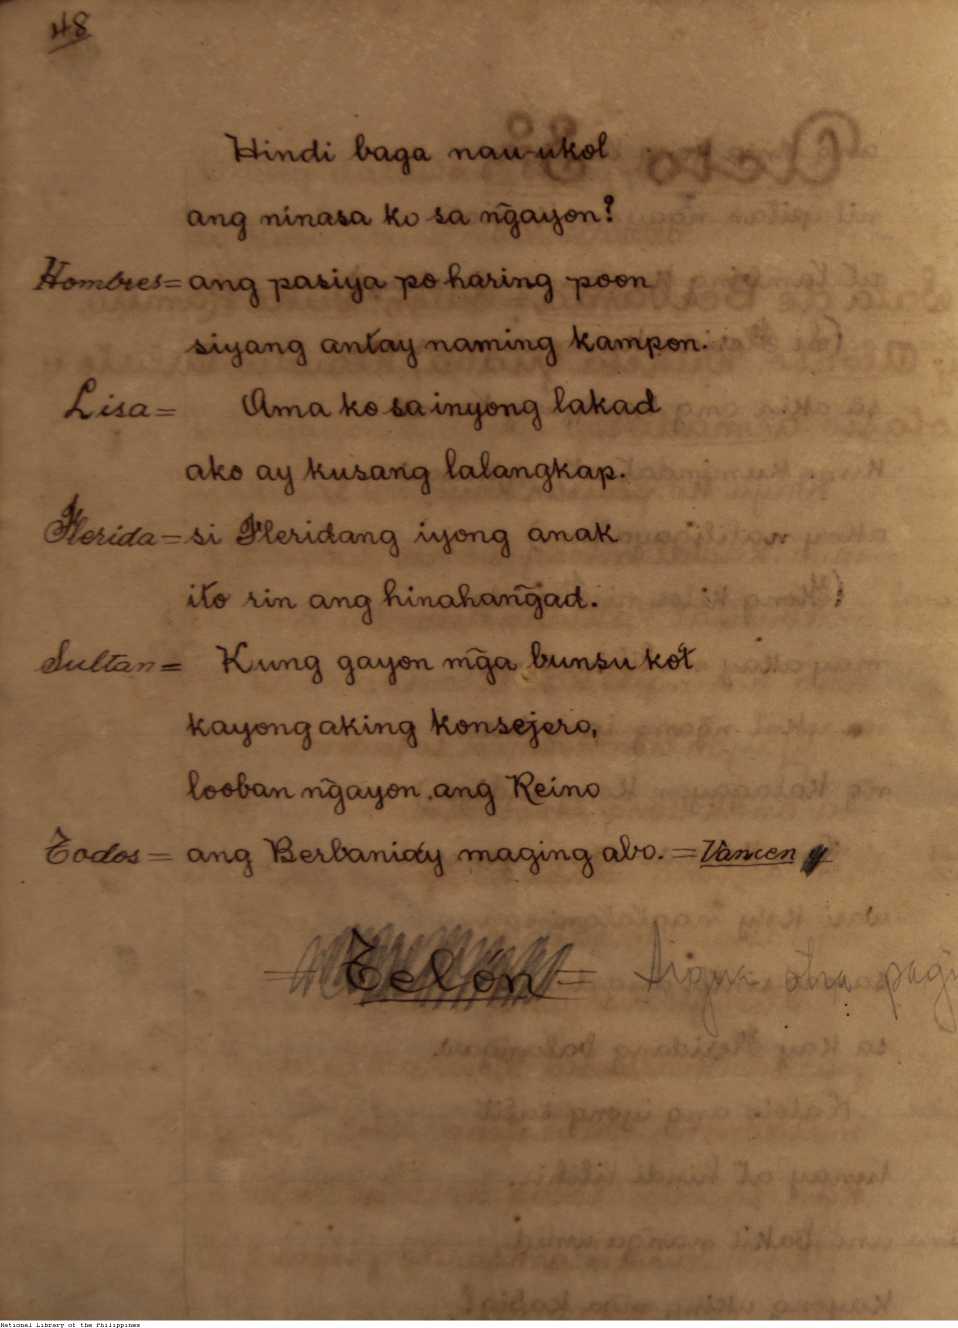 48
Hindi baga nau-ukol
ang ninasa ko sa n͠gayon?
Hombres = ang pasiya po haring poon
siyang antay naming kampon.
Lisa = Ama ko sa inyong lakad
ako ay kusang lalangkap.
Flerida = si Fleridang iyong anak
ito rin ang hinahan͠gad.
Sultan = Kung gayon m͠ga bunsu ko't
kayong aking konsejero,
looban n͠gayon ang Reino
Todos = ang Berbanidy maging abo. = Vancen
= Telón = Sigue otra pagi
National Library of the Philippines